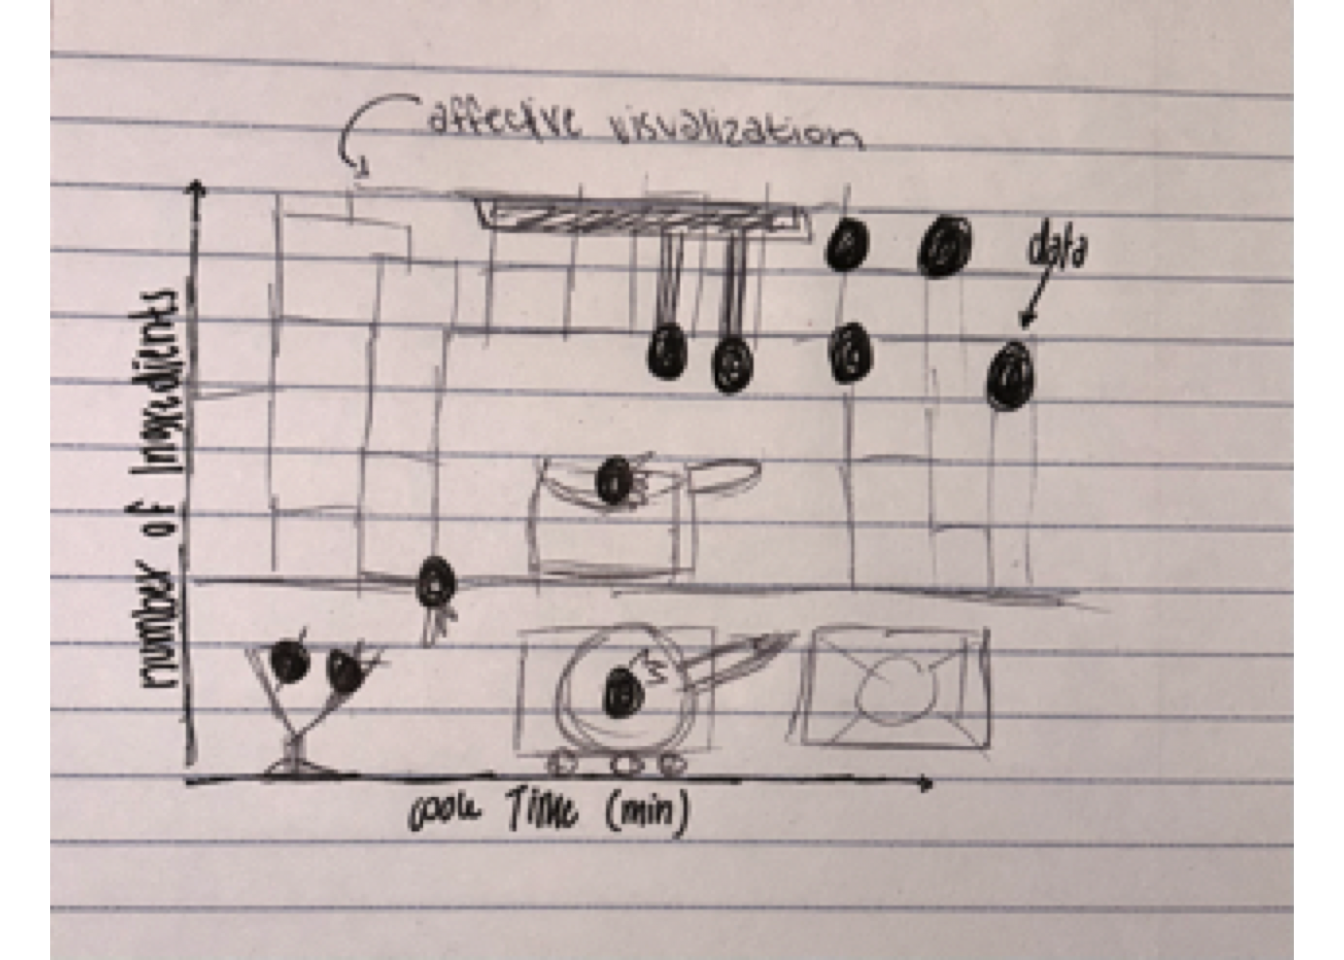 affective visualization
data
number of Ingredients
cook Time (min)